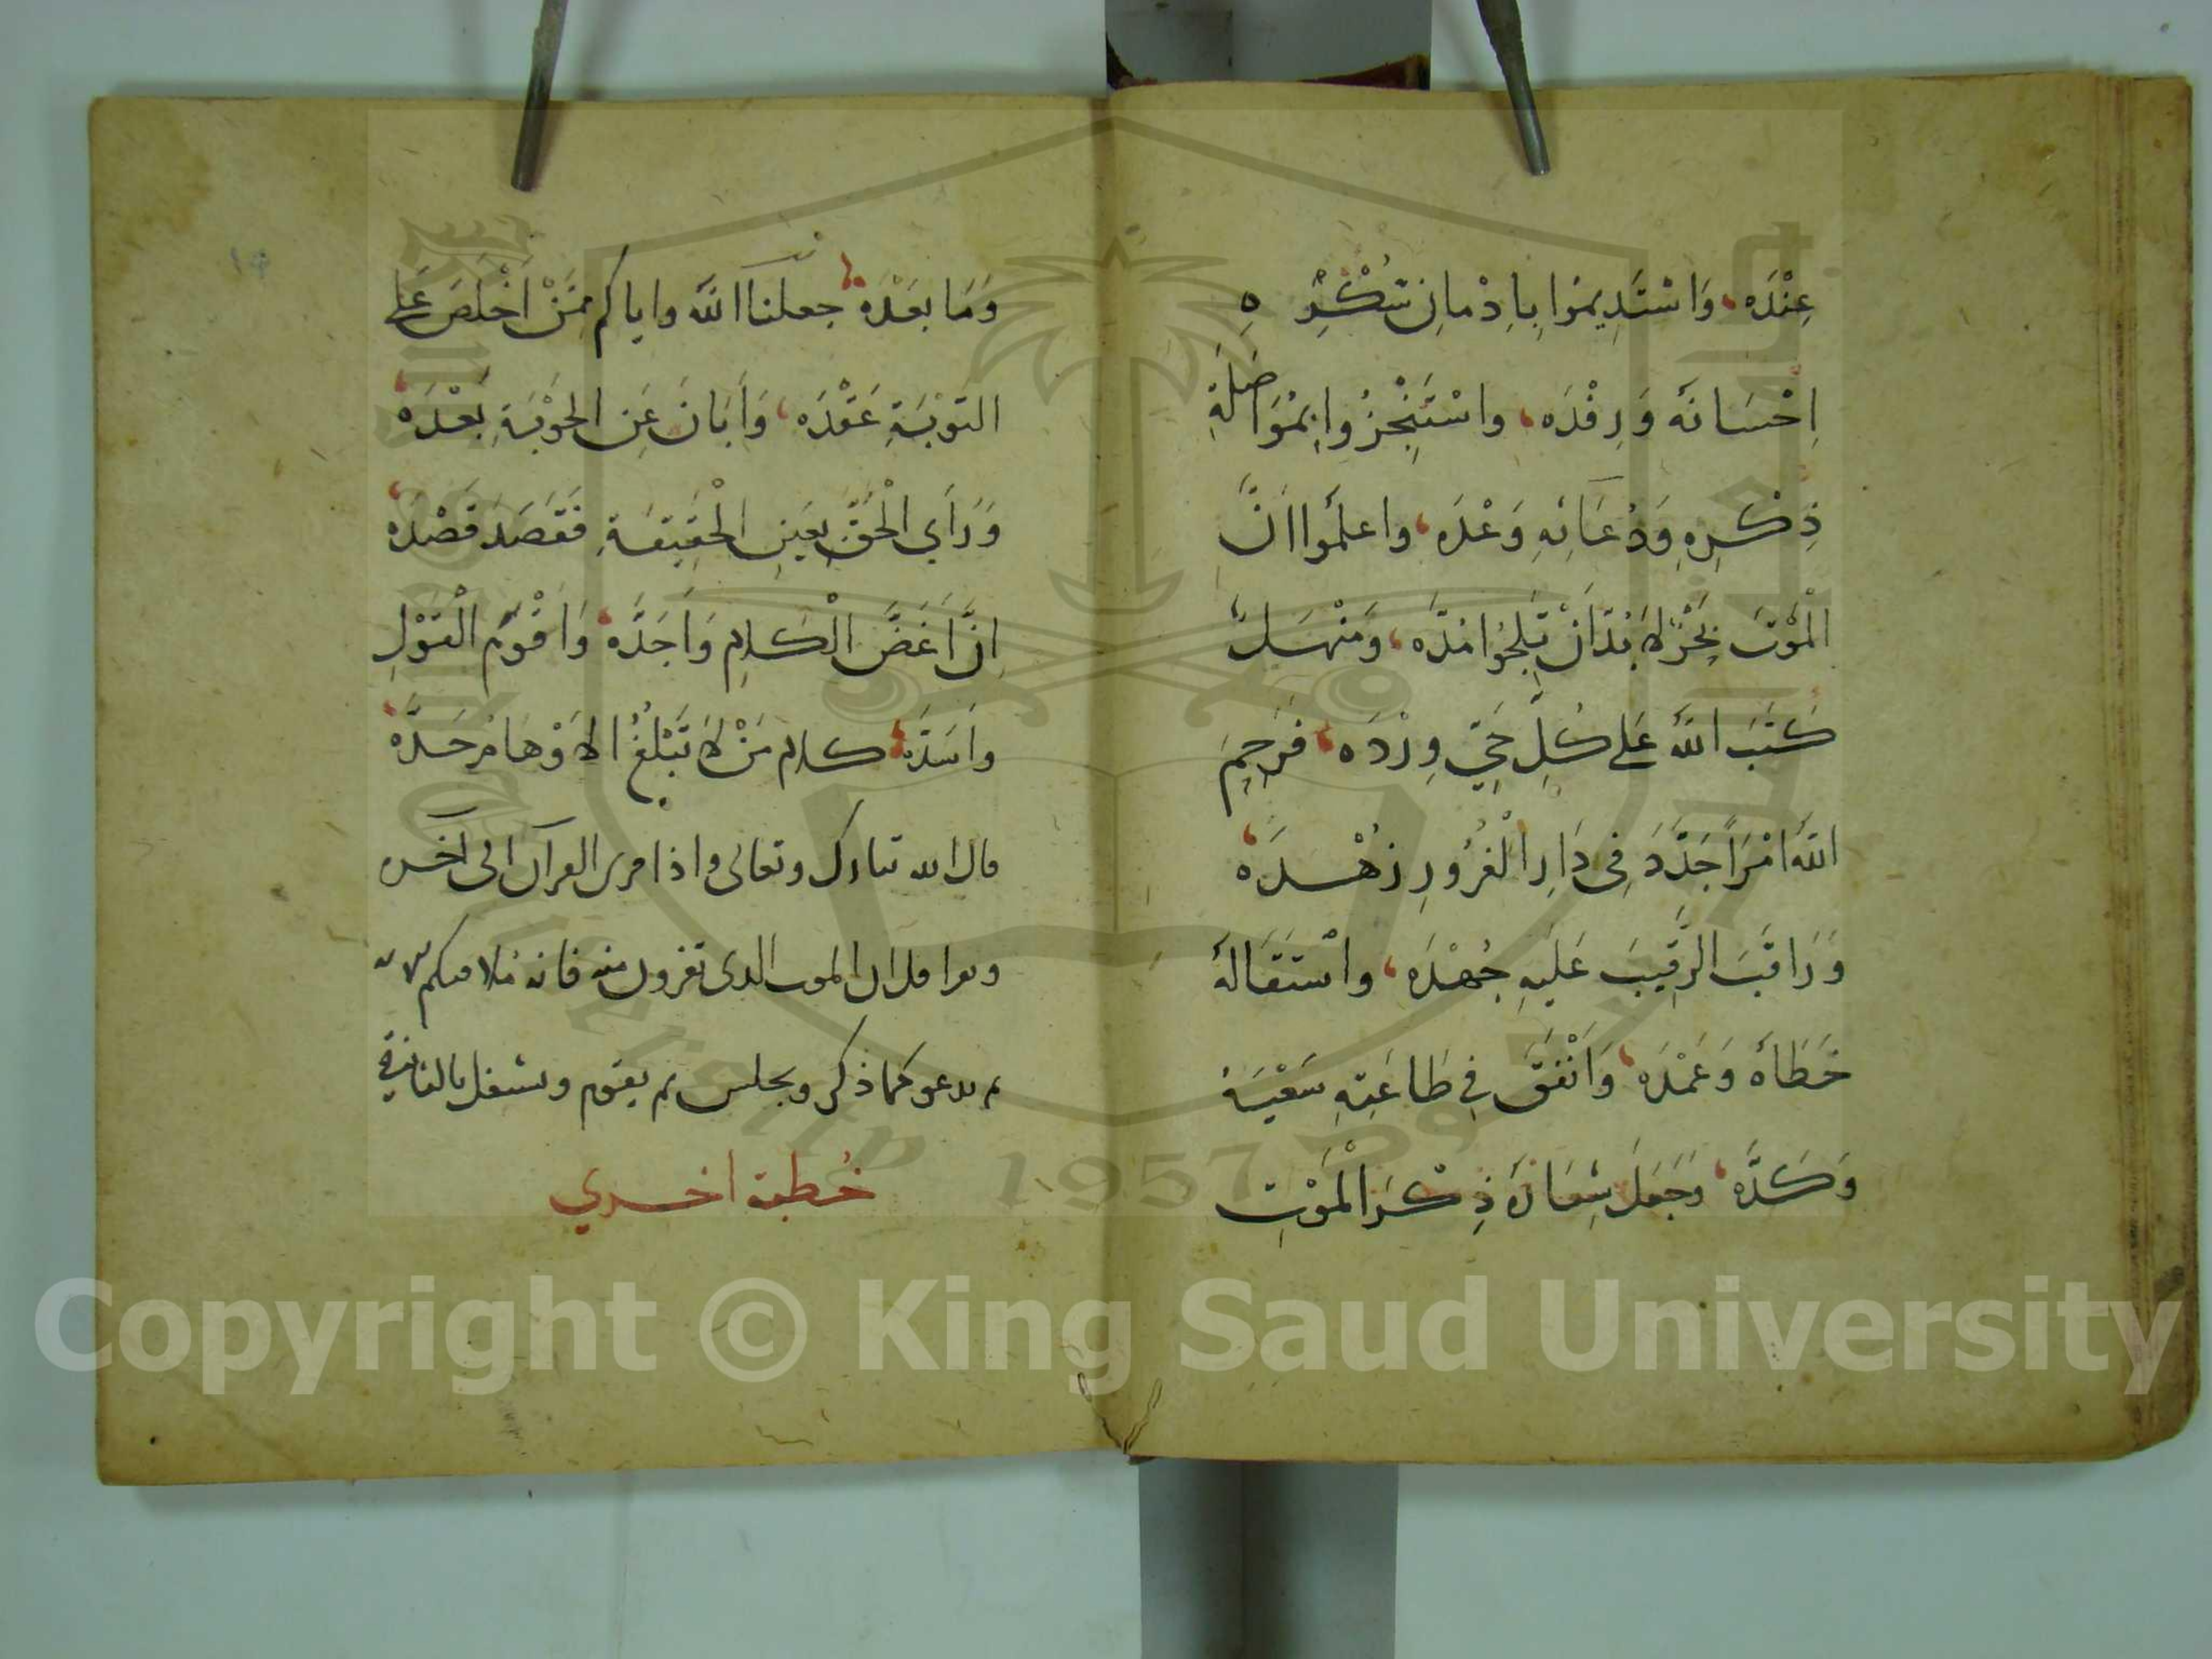 عِنْدَه، وَاسْتَدِيمُوا بِاِدْمانِ شُكْرِهِ
اِحْسَانَهُ وَرِفْدَه، واسْتَنْجِزُوا بِمُوَاصَلَةِ
ذِكْرِهِ وَدُعَائِهِ وَعْدَه، واعلَمُوا انَّ
الْمَوْتَ بَحْرٌ لا بُدَّ اَنْ تَلِجُوا مَدَّه، وَمَنْهَلٌ
كَتَبَ اللّٰهُ عَلى كُلِّ حَيٍّ وِرْدَه، فَرَحِمَ
اللّٰهُ امْرَاً جَدَّدَ فِى دَارِ الْغُرُورِ زُهْدَه،
وَرَاقَبَ الرَّقِيبَ عَلَيهِ جُهْدَه، واسْتَقَالَهُ
خَطَاهُ وَعَمْدَه، وَاَنْفَقَ فِى طَاعَتِهِ سَعْيَهُ
وَكَدَّه، وَجَعَلَ شِعَارَهُ ذِكْرَ الْمَوْتِ
وَمَا بَعْدَه، جعلنا اللّٰه واياكم مِمَّنْ اَخْلَصَ عَلى
التَوْبَةِ عَقْدَه، وَاَبَانَ عَنِ الحَوْبَةِ بُعْدَه،
وَرَأَي الْحَقَّ بِعَينِ الْحَقِيقَةِ فَقَصَدَ قَصْدَه،
اِنَّ اَغَضَّ الْكَلامِ وَاَجَدَّه، وَاَقْوَمَ الْقَوْلِ
واَسَدَّه، كلام مَنْ لا تَبْلُغُ الاَوْهَامُ حَدَّه،
قال الله تبارك وتعالى واذا قرى القرآن الى آخره
ويقرا قل ان الموت الذى تفرون منه فانه ملاقيكم الايه
ثم يدعو كما ذكر ويجلس ثم يقوم ويشتغل بالثانية
خُطبة اخري
Copyright © King Saud University
1957